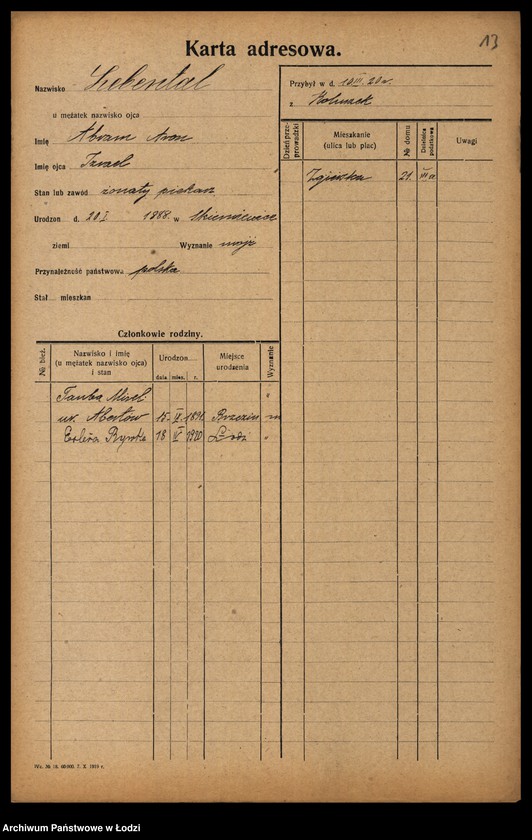 13
Karta adresowa.
Nazwisko Liebental
u mężatek nazwisko ojca
Imię Abram Aron
Imię ojca Izrael
Stan lub zawód żonaty piekarz
Urodzon d. 20 I 1888 w Skierniewice
ziemi Wyznanie mojż
Przynależność państwowa polska
Stał mieszkan
Przybył w d. III 20 r.
z Koluszek
Dzień przeprowadzki
Mieszkanie (ulica lub plac)
№ domu
Dzielnica podatkowa
Uwagi
Zgierska 21 III a
Członkowie rodziny.
№ bież.
Nazwisko i imię (u mężatek nazwisko ojca) i stan
Urodzon
dnia mies. r.
Miejsce urodzenia
Wyznanie
Tauba Mirel "
ur. Abertów 15 IX 1896 Brzeziny m
Estera Rywka 18 IV 1920 Łódź "
Wz. № 16. 60/000. 7. X. 1919 r.
Archiwum Państwowe w Łodzi